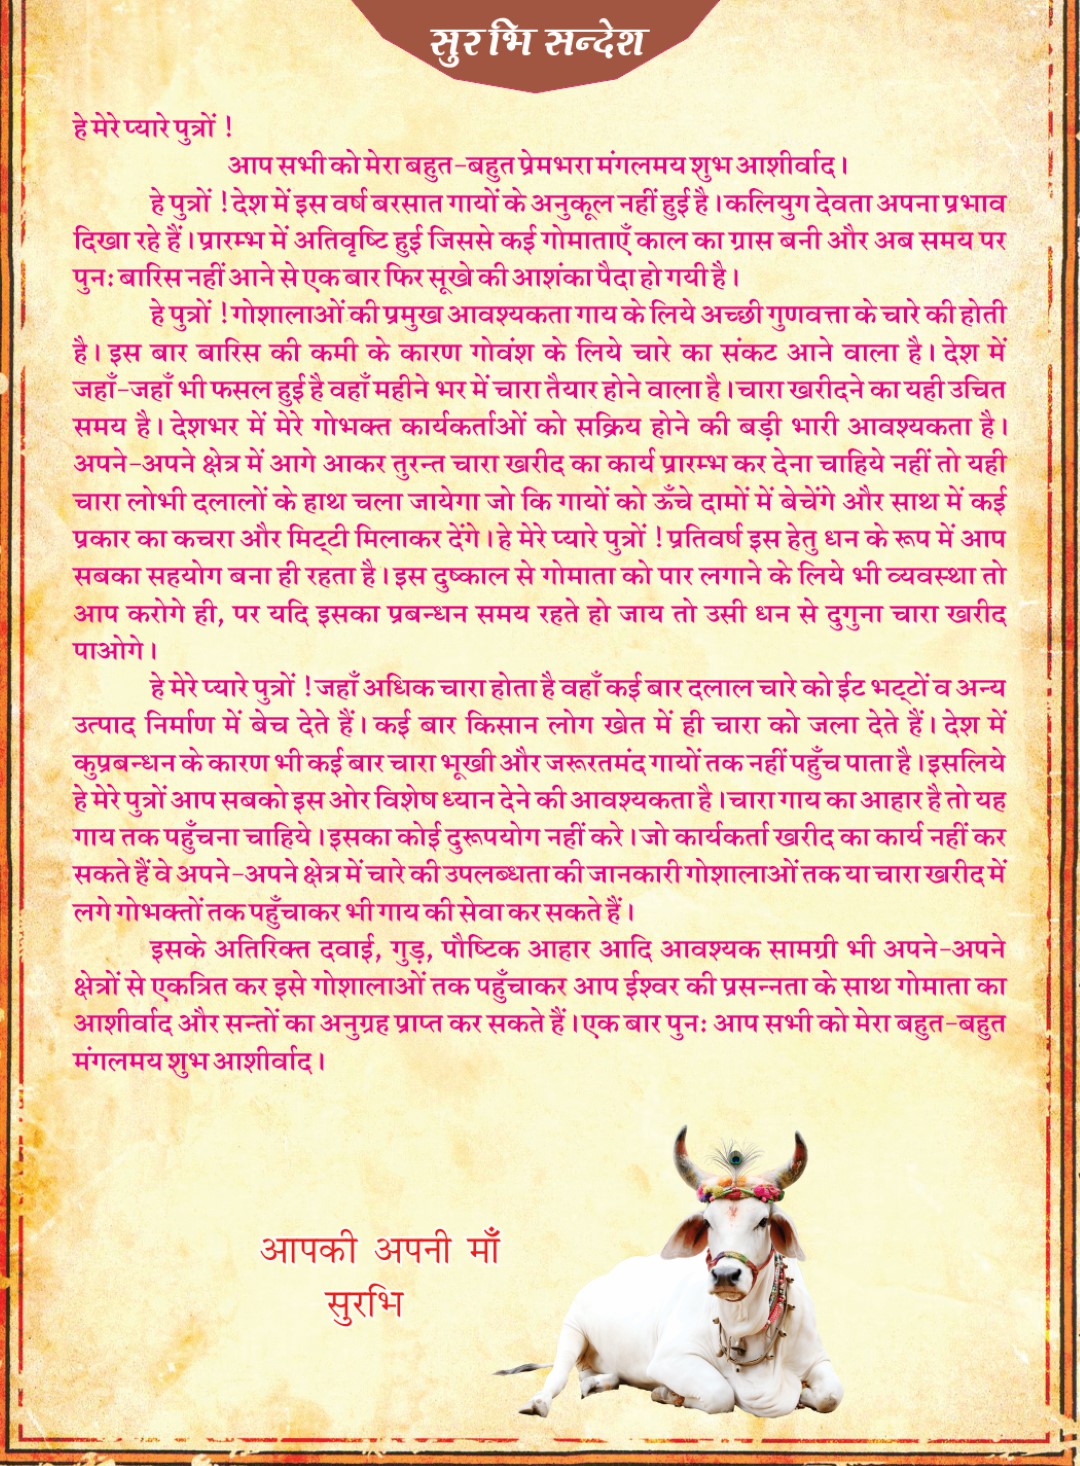 सुरभि सन्देश
हे मेरे प्यारे पुत्रों !
आप सभी को मेरा बहुत-बहुत प्रेमभरा मंगलमय शुभ आशीर्वाद।
हे पुत्रों ! देश में इस वर्ष बरसात गायों के अनुकूल नहीं हुई है। कलियुग देवता अपना प्रभाव
दिखा रहे हैं। प्रारम्भ में अतिवृष्टि हुई जिससे कई गोमाताएँ काल का ग्रास बनी और अब समय पर
पुनः बारिस नहीं आने से एक बार फिर सूखे की आशंका पैदा हो गयी है।
हे पुत्रों ! गोशालाओं की प्रमुख आवश्यकता गाय के लिये अच्छी गुणवत्ता के चारे की होती
है। इस बार बारिस की कमी के कारण गोवंश के लिये चारे का संकट आने वाला है। देश में
जहाँ-जहाँ भी फसल हुई है वहाँ महीने भर में चारा तैयार होने वाला है। चारा खरीदने का यही उचित
समय है। देशभर में मेरे गोभक्त कार्यकर्ताओं को सक्रिय होने की बड़ी भारी आवश्यकता है।
अपने-अपने क्षेत्र में आगे आकर तुरन्त चारा खरीद का कार्य प्रारम्भ कर देना चाहिये नहीं तो यही
चारा लोभी दलालों के हाथ चला जायेगा जो कि गायों को ऊँचे दामों में बेचेंगे और साथ में कई
प्रकार का कचरा और मिट्टी मिलाकर देंगे। हे मेरे प्यारे पुत्रों ! प्रतिवर्ष इस हेतु धन के रूप में आप
सबका सहयोग बना ही रहता है। इस दुष्काल से गोमाता को पार लगाने के लिये भी व्यवस्था तो
आप करोगे ही, पर यदि इसका प्रबन्धन समय रहते हो जाय तो उसी धन से दुगुना चारा खरीद
पाओगे।
हे मेरे प्यारे पुत्रों ! जहाँ अधिक चारा होता है वहाँ कई बार दलाल चारे को ईट भट्टों व अन्य
उत्पाद निर्माण में बेच देते हैं। कई बार किसान लोग खेत में ही चारा को जला देते हैं। देश में
कुप्रबन्धन के कारण भी कई बार चारा भूखी और जरूरतमंद गायों तक नहीं पहुँच पाता है। इसलिये
हे मेरे पुत्रों आप सबको इस ओर विशेष ध्यान देने की आवश्यकता है। चारा गाय का आहार है तो यह
गाय तक पहुँचना चाहिये। इसका कोई दुरूपयोग नहीं करे। जो कार्यकर्ता खरीद का कार्य नहीं कर
सकते हैं वे अपने-अपने क्षेत्र में चारे की उपलब्धता की जानकारी गोशालाओं तक या चारा खरीद में
लगे गोभक्तों तक पहुँचाकर भी गाय की सेवा कर सकते हैं।
इसके अतिरिक्त दवाई, गुड़, पौष्टिक आहार आदि आवश्यक सामग्री भी अपने-अपने
क्षेत्रों से एकत्रित कर इसे गोशालाओं तक पहुँचाकर आप ईश्वर की प्रसन्नता के साथ गोमाता का
आशीर्वाद और सन्तों का अनुग्रह प्राप्त कर सकते हैं। एक बार पुनः आप सभी को मेरा बहुत-बहुत
मंगलमय शुभ आशीर्वाद।
आपकी अपनी माँ
सुरभि